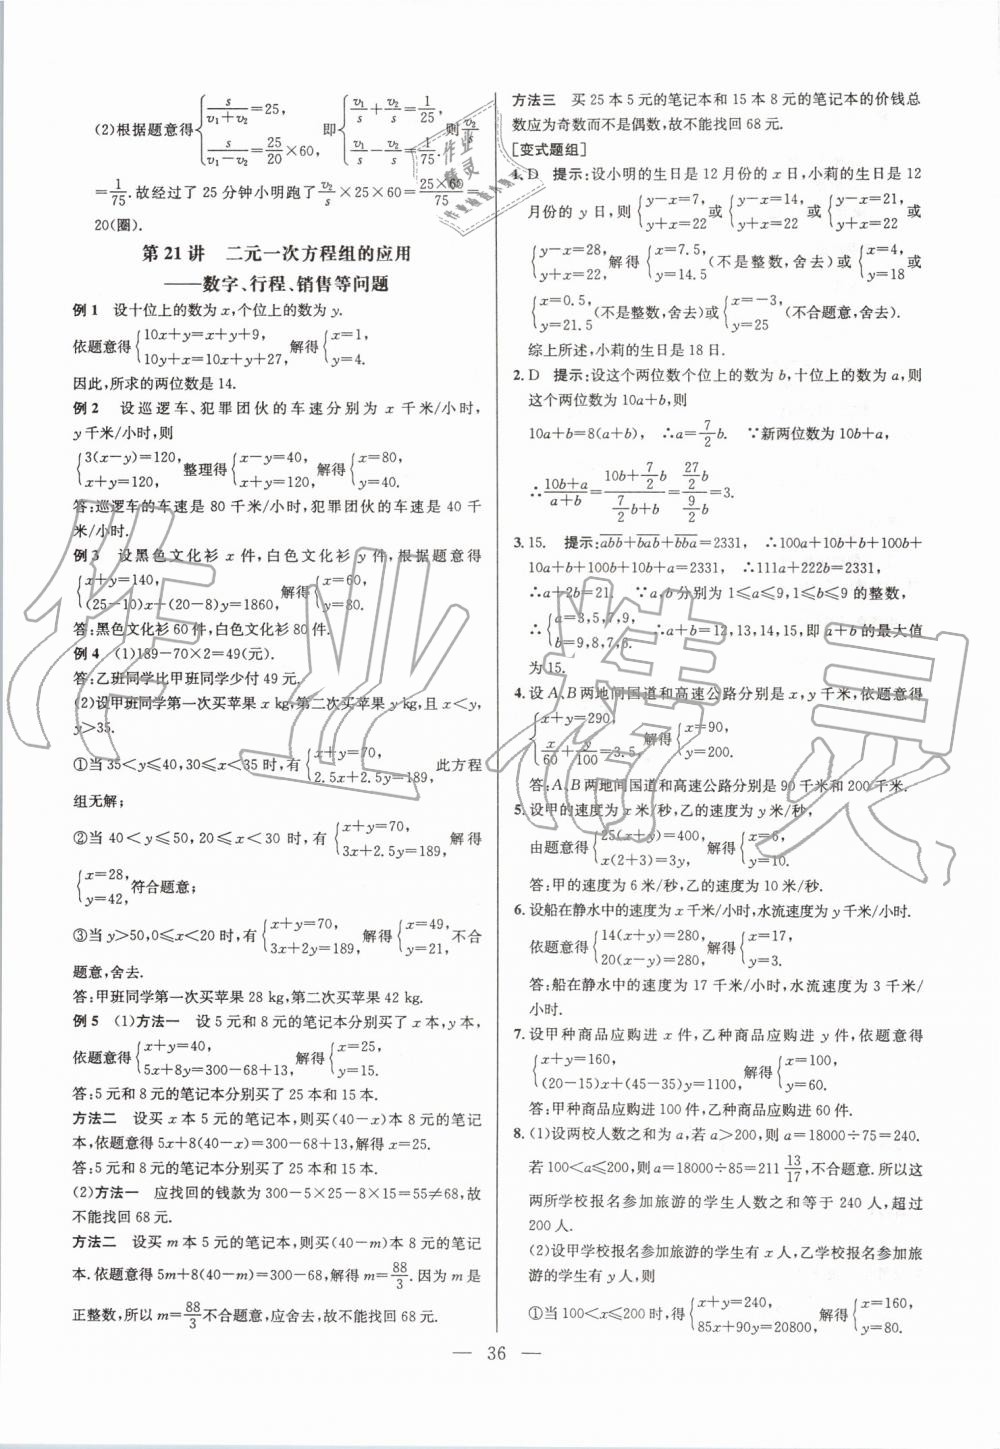 (2)根据题意得{s/(v₁+v₂)=25, s/(v₁-v₂)=25/20×60, 即{v₁/s+v₂/s=1/25, v₁/s-v₂/s=1/75. 则v₂/s
=1/75.故经过了 25 分钟小明跑了v₂/s×25×60=25×60/75=
20(圈).
第 21 讲 二元一次方程组的应用
——数字、行程、销售等问题
例 1 设十位上的数为 x,个位上的数为 y.
依题意得{10x+y=x+y+9, 10y+x=10x+y+27, 解得{x=1, y=4.
因此,所求的两位数是 14.
例 2 设巡逻车、犯罪团伙的车速分别为 x 千米/小时,
y 千米/小时,则
{3(x-y)=120, x+y=120, 整理得{x-y=40, x+y=120, 解得{x=80, y=40.
答:巡逻车的车速是 80 千米/小时,犯罪团伙的车速是 40 千
米/小时.
例 3 设黑色文化衫 x 件,白色文化衫 y 件,根据题意得
{x+y=140, (25-10)x+(20-8)y=1860, 解得{x=60, y=80.
答:黑色文化衫 60 件,白色文化衫 80 件.
例 4 (1)189-70×2=49(元).
答:乙班同学比甲班同学少付 49 元.
(2)设甲班同学第一次买苹果 x kg,第二次买苹果 y kg,且 x<y,
y>35.
①当 35<y≤40,30≤x<35 时,有{x+y=70, 2.5x+2.5y=189, 此方程
组无解;
②当 40<y≤50,20≤x<30 时,有{x+y=70, 3x+2.5y=189, 解得
{x=28, y=42, 符合题意;
③当 y>50,0≤x<20 时,有{x+y=70, 3x+2y=189, 解得{x=49, y=21, 不合
题意,舍去.
答:甲班同学第一次买苹果 28 kg,第二次买苹果 42 kg.
例 5 (1)方法一 设 5 元和 8 元的笔记本分别买了 x 本,y 本,
依题意得{x+y=40, 5x+8y=300-68+13, 解得{x=25, y=15.
答:5 元和 8 元的笔记本分别买了 25 本和 15 本.
方法二 设买 x 本 5 元的笔记本,则买(40-x)本 8 元的笔记
本,依题意得 5x+8(40-x)=300-68+13,解得 x=25.
答:5 元和 8 元的笔记本分别买了 25 本和 15 本.
(2)方法一 应找回的钱款为 300-5×25-8×15=55≠68,故
不能找回 68 元.
方法二 设买 m 本 5 元的笔记本,则买(40-m)本 8 元的笔记
本.依题意得 5m+8(40-m)=300-68,解得 m=88/3.因为 m 是
正整数,所以 m=88/3不合题意,应舍去,故不能找回 68 元.
方法三 买 25 本 5 元的笔记本和 15 本 8 元的笔记本的价钱总
数应为奇数而不是偶数,故不能找回 68 元.
[变式题组]
1. D 提示:设小明的生日是 12 月份的 x 日,小莉的生日是 12
月份的 y 日,则{y-x=7, x+y=22, 或{y-x=14, x+y=22, 或{y-x=21, x+y=22, 或
{y-x=28, y+x=22, 解得{x=7.5, y=14.5 (不是整数,舍去)或{x=4, y=18 或
{x=0.5, y=21.5 (不是整数,舍去)或{x=-3, y=25 (不合题意,舍去).
综上所述,小莉的生日是 18 日.
2. D 提示:设这个两位数个位上的数为 b,十位上的数为 a,则
这个两位数为 10a+b,则
10a+b=8(a+b), ∴a=7/2b. ∵新两位数为 10b+a,
∴(10b+a)/(a+b)=(10b+7/2b)/(7/2b+b)=(27/2b)/(9/2b)=3.
3. 15. 提示:a̅b̅b̅+b̅a̅b̅+b̅b̅a̅=2331, ∴100a+10b+b+100b+
10a+b+100b+10b+a=2331, ∴111a+222b=2331,
∴a+2b=21. ∵a,b分别为 1≤a≤9,1≤b≤9 的整数,
∴{a=3,5,7,9, b=9,8,7,6. ∴a+b=12,13,14,15,即 a+b 的最大值
为 15.
4. 设 A,B 两地间国道和高速公路分别是 x,y 千米,依题意得
{x+y=290, x/60+y/100=3.5, 解得{x=90, y=200.
答:A、B 两地间国道和高速公路分别是 90 千米和 200 千米.
5. 设甲的速度为 x 米/秒,乙的速度为 y 米/秒,
由题意得{25(x+y)=400, x(2+3)=3y, 解得{x=6, y=10.
答:甲的速度为 6 米/秒,乙的速度为 10 米/秒.
6. 设船在静水中的速度为 x 千米/小时,水流速度为 y 千米/小时.
依题意得{14(x+y)=280, 20(x-y)=280, 解得{x=17, y=3.
答:船在静水中的速度为 17 千米/小时,水流速度为 3 千米/
小时.
7. 设甲种商品应购进 x 件,乙种商品应购进 y 件,依题意得
{x+y=160, (20-15)x+(45-35)y=1100, 解得{x=100, y=60.
答:甲种商品应购进 100 件,乙种商品应购进 60 件.
8. (1)设两校人数之和为 a,若 a>200,则 a=18000÷75=240.
若 100<a≤200,则 a=18000÷85=211 13/17,不合题意.所以这
两所学校报名参加旅游的学生人数之和等于 240 人,超过
200 人.
(2)设甲学校报名参加旅游的学生有 x 人,乙学校报名参加旅
游的学生有 y 人,则
①当 100<x≤200 时,得{x+y=240, 85x+90y=20800, 解得{x=160, y=80.
— 36 —
作业精灵